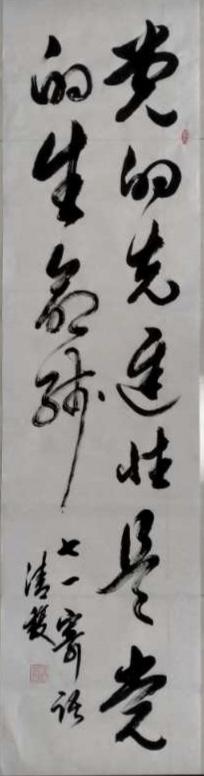 党的先进性是党
的生命线
七一寄语
清毅